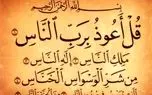 بسم الله الرحمن الرحيم
قل أعوذ برب الناس
ملك الناس إله الناس
من شر الوسواس الخناس